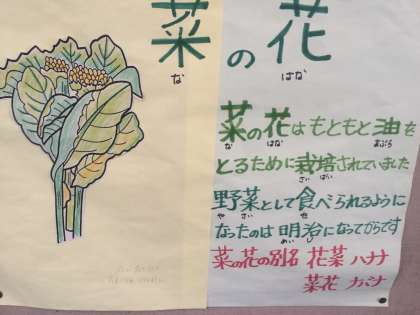 菜の花
な はな
菜の花はもともと油を
な はな あぶら
とるために栽培されていました
さいばい
野菜として食べられるように
やさい
なったのは明治になってからです
めいじ
菜の花の別名 花菜 ハナナ
菜花